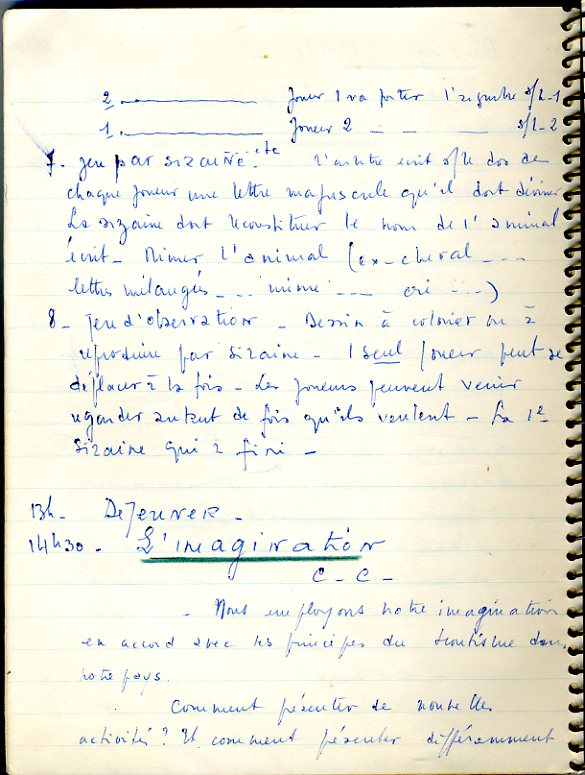 2. Joueur 1 va porter l'aiguille s/L-1
1. Joueur 2 _ _ _ s/L-2
etc
7. Jeu par sizaine. L'arbitre écrit s/le dos de
chaque joueur une lettre majuscule qu'il doit deviner
La sizaine doit reconstituer le nom de l'animal
écrit - Mimer l'animal (ex-cheval ---
lettres mélangées --- mime --- cri ---)
8 - Jeu d'observation - Dessin à colorier ou à
reproduire par sizaine - 1 seul joueur peut se
déplacer à la fois - Les joueurs peuvent venir
regarder autant de fois qu'ils veulent - La 1e
sizaine qui a fini -
13h - Dejeuner -
14h30 - L'imagination
C - C -
- Nous employons notre imagination
en accord avec les principes du scoutisme dans
notre pays.
Comment présenter de nouvelles
activités ? Et comment présenter différemment